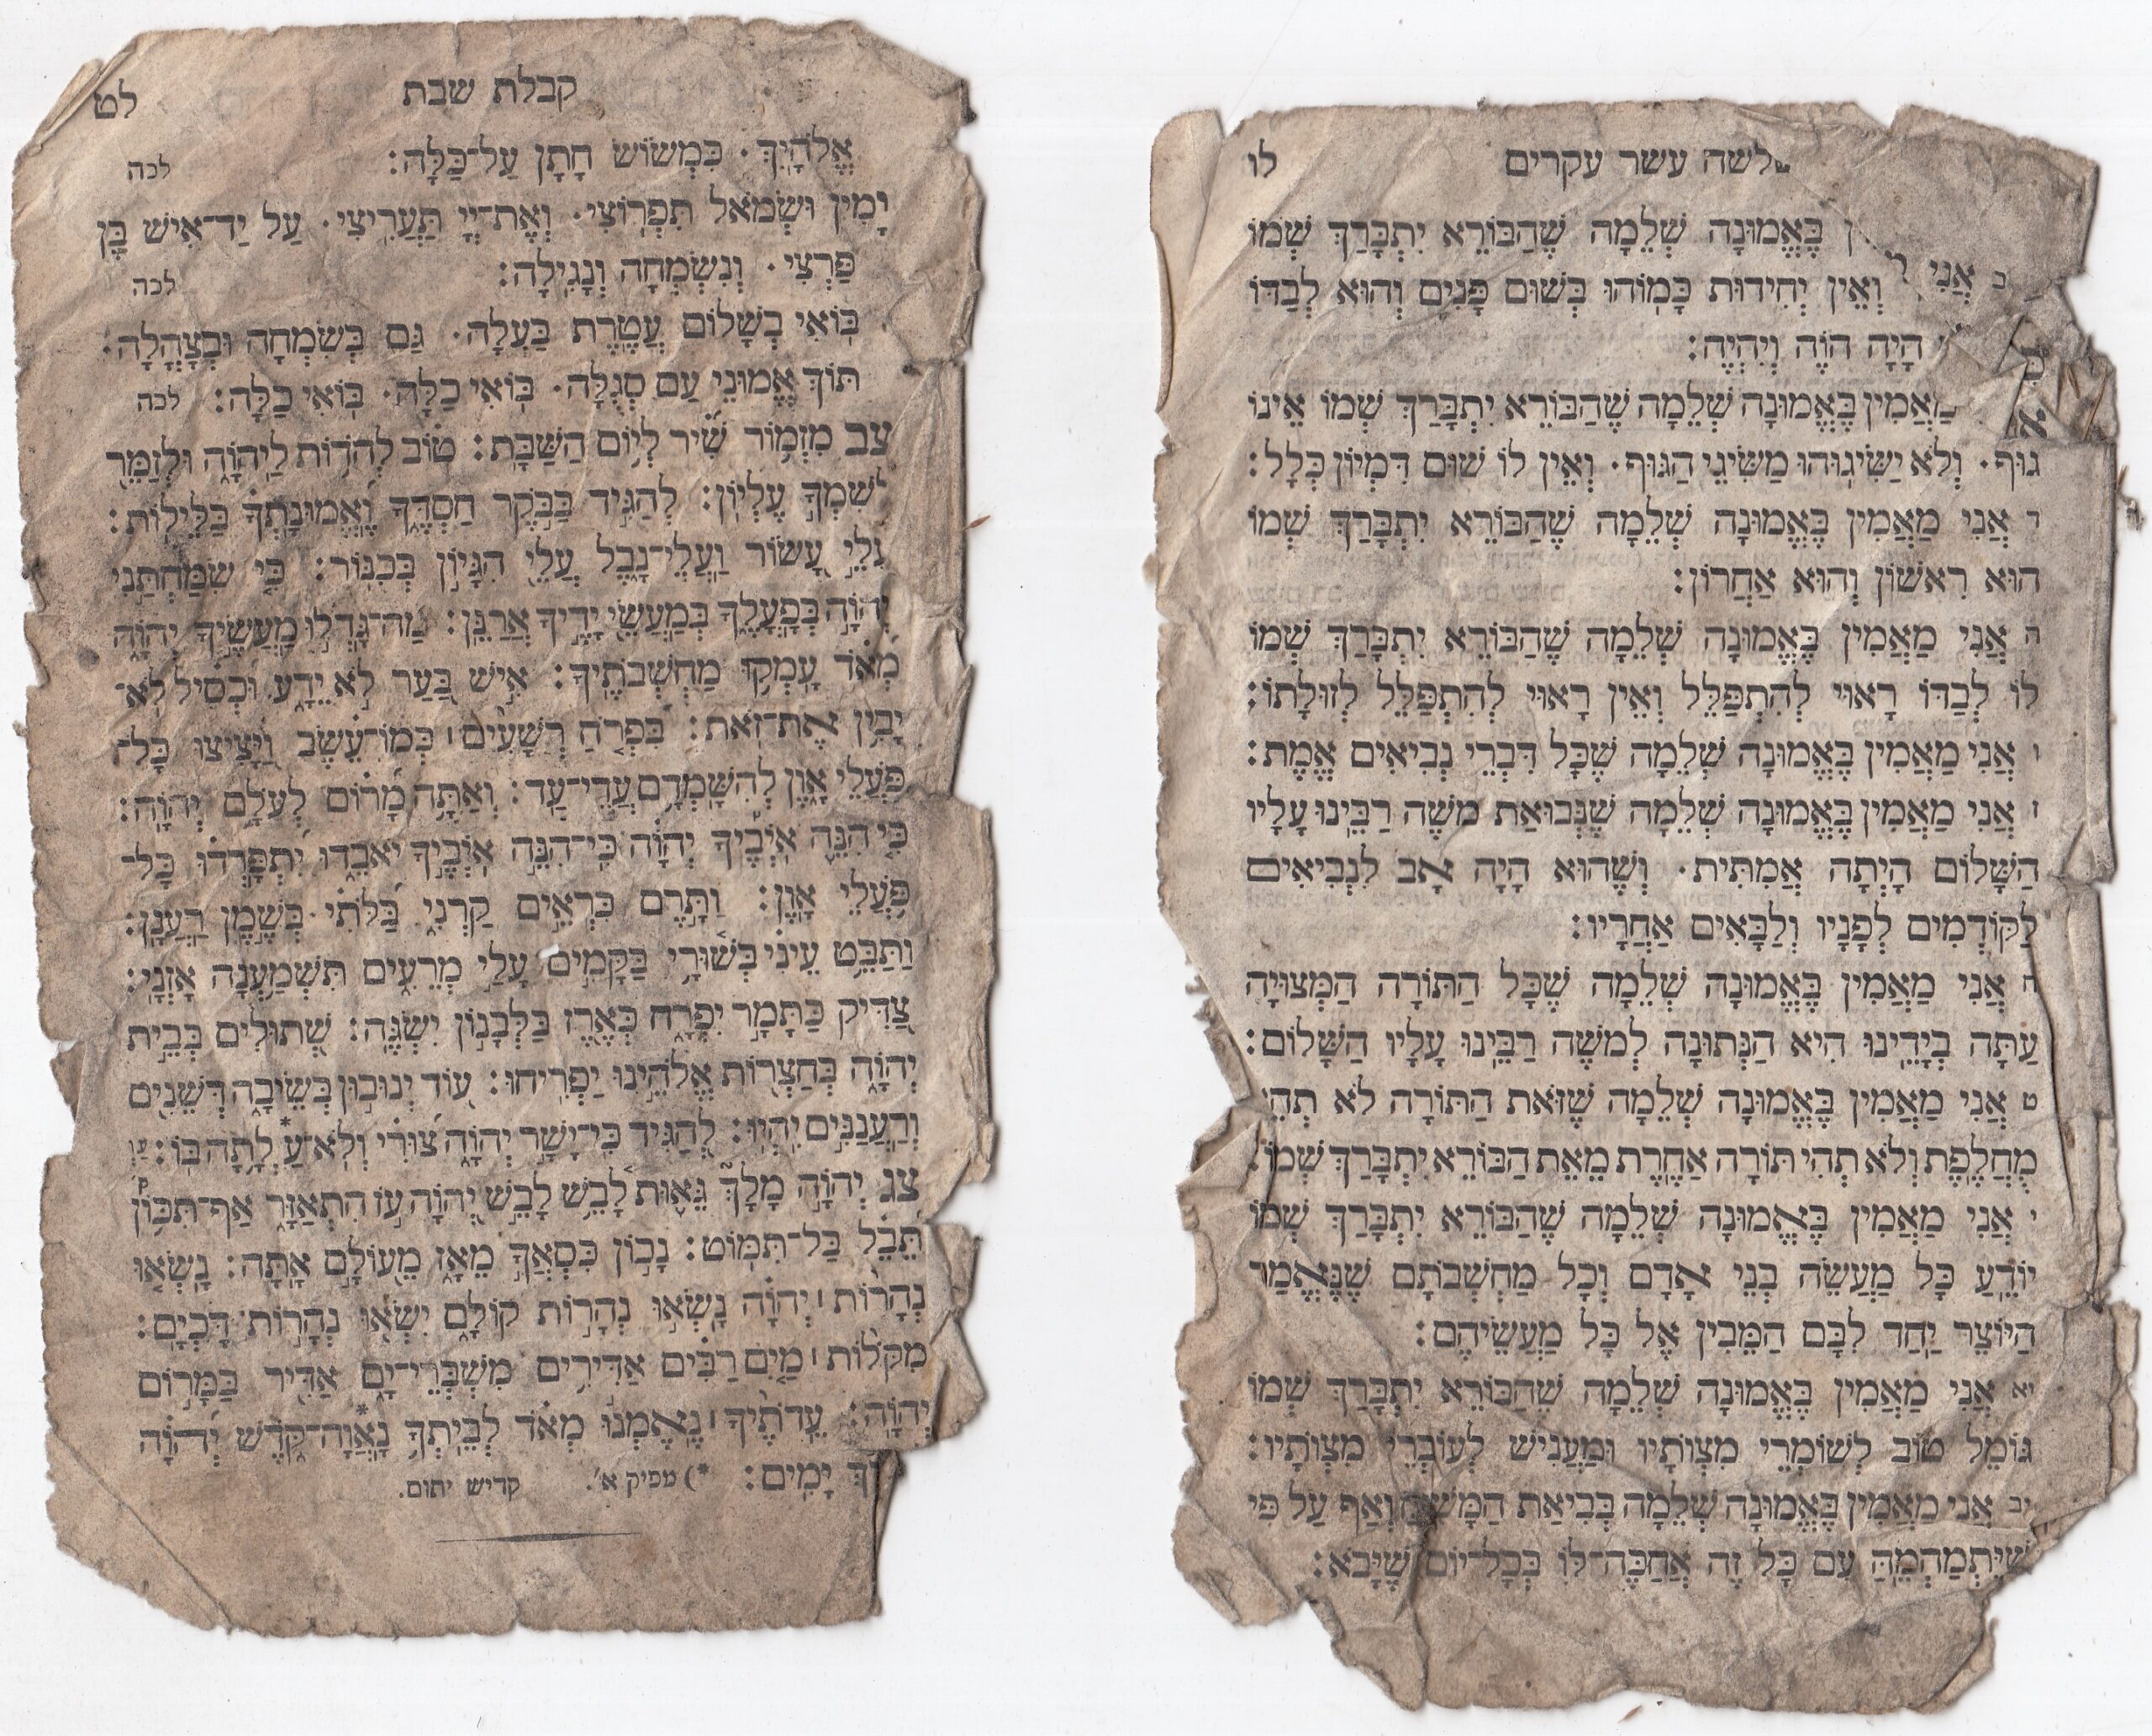 שלשה עשר עקרים לו
בֶּאֱמוּנָה שְׁלֵמָה שֶׁהַבּוֹרֵא יִתְבָּרַךְ שְׁמוֹ
ב אֲנִי
וְאֵין יְחִידוּת כָּמוֹהוּ בְּשׁוּם פָּנִים וְהוּא לְבַדּוֹ
הָיָה הוֹה וְיִהְיֶה:
מַאֲמִין בֶּאֱמוּנָה שְׁלֵמָה שֶׁהַבּוֹרֵא יִתְבָּרַךְ שְׁמוֹ אֵינוֹ
גוּף. וְלֹא יַשִּׂיגוּהוּ מַשִּׂיגֵי הַגּוּף. וְאֵין לוֹ שׁוּם דִּמְיוֹן כְּלָל:
ד אֲנִי מַאֲמִין בֶּאֱמוּנָה שְׁלֵמָה שֶׁהַבּוֹרֵא יִתְבָּרַךְ שְׁמוֹ
הוּא רִאשׁוֹן וְהוּא אַחֲרוֹן:
ה אֲנִי מַאֲמִין בֶּאֱמוּנָה שְׁלֵמָה שֶׁהַבּוֹרֵא יִתְבָּרַךְ שְׁמוֹ
לוֹ לְבַדּוֹ רָאוּי לְהִתְפַּלֵּל וְאֵין רָאוּי לְהִתְפַּלֵּל לְזוּלָתוֹ:
ו אֲנִי מַאֲמִין בֶּאֱמוּנָה שְׁלֵמָה שֶׁכָּל דִּבְרֵי נְבִיאִים אֱמֶת:
ז אֲנִי מַאֲמִין בֶּאֱמוּנָה שְׁלֵמָה שֶׁנְּבוּאַת מֹשֶׁה רַבֵּינוּ עָלָיו
הַשָּׁלוֹם הָיְתָה אֲמִתִּית. וְשֶׁהוּא הָיָה אָב לִנְבִיאִים
לַקּוֹדְמִים לְפָנָיו וְלַבָּאִים אַחֲרָיו:
ח אֲנִי מַאֲמִין בֶּאֱמוּנָה שְׁלֵמָה שֶׁכָּל הַתּוֹרָה הַמְּצוּיָה
עַתָּה בְיָדֵינוּ הִיא הַנְּתוּנָה לְמֹשֶׁה רַבֵּינוּ עָלָיו הַשָּׁלוֹם:
ט אֲנִי מַאֲמִין בֶּאֱמוּנָה שְׁלֵמָה שֶׁזֹּאת הַתּוֹרָה לֹא תְהֵי
מֻחְלֶפֶת וְלֹא תְהִי תּוֹרָה אַחֶרֶת מֵאֵת הַבּוֹרֵא יִתְבָּרַךְ שְׁמוֹ:
י אֲנִי מַאֲמִין בֶּאֱמוּנָה שְׁלֵמָה שֶׁהַבּוֹרֵא יִתְבָּרַךְ שְׁמוֹ
יוֹדֵעַ כָּל מַעֲשֵׂה בְנֵי אָדָם וְכָל מַחְשְׁבֹתָם שֶׁנֶּאֱמַר
הַיּוֹצֵר יַחַד לִבָּם הַמֵּבִין אֶל כָּל מַעֲשֵׂיהֶם:
יא אֲנִי מַאֲמִין בֶּאֱמוּנָה שְׁלֵמָה שֶׁהַבּוֹרֵא יִתְבָּרַךְ שְׁמוֹ
גּוֹמֵל טוֹב לְשׁוֹמְרֵי מִצְוֹתָיו וּמַעֲנִישׁ לְעוֹבְרֵי מִצְוֹתָיו:
יב אֲנִי מַאֲמִין בֶּאֱמוּנָה שְׁלֵמָה בְּבִיאַת הַמָּשִׁיחַ וְאַף עַל פִּי
שֶׁיִּתְמַהְמֵהַּ עִם כָּל זֶה אֲחַכֶּה־לּוֹ בְּכָל־יוֹם שֶׁיָּבֹא:
קבלת שבת לט
אֱלֹהָיִךְ. כִּמְשׂוֹשׂ חָתָן עַל־כַּלָּה: לכה
יָמִין וּשְׂמֹאל תִּפְרֽוֹצִי. וְאֶת־יְיָ תַּעֲרִיצִי. עַל יַד־אִישׁ בֶּן
פַּרְצִי. וְנִשְׂמְחָה וְנָגִילָה: לכה
בּוֹאִי בְשָׁלוֹם עֲטֶרֶת בַּעְלָהּ. גַּם בְּשִׂמְחָה וּבְצָהֳלָה.
תּוֹךְ אֱמוּנֵי עַם סְגֻלָּה. בּוֹאִי כַלָּה. בּוֹאִי כַלָּה: לכה
צב מִזְמוֹר שִׁיר לְיוֹם הַשַּׁבָּת: טוֹב לְהֹדוֹת לַיהוָֹה וּלְזַמֵּר
לְשִׁמְךָ עֶלְיוֹן: לְהַגִּיד בַּבֹּקֶר חַסְדֶּךָ וֶאֱמוּנָתְךָ בַּלֵּילוֹת:
עֲלֵי עָשׂוֹר וַעֲלֵי־נָבֶל עֲלֵי הִגָּיוֹן בְּכִנּוֹר: כִּי שִׂמַּחְתַּנִי
יְהוָֹה בְּפָעֳלֶךָ בְּמַעֲשֵׂי יָדֶיךָ אֲרַנֵּן: מַה־גָּדְלוּ מַעֲשֶׂיךָ יְהוָֹה
מְאֹד עָמְקוּ מַחְשְׁבֹתֶיךָ: אִישׁ בַּעַר לֹא יֵדָע וּכְסִיל לֹא־
יָבִין אֶת־זֹאת: בִּפְרֹחַ רְשָׁעִים ׀ כְּמוֹ־עֵשֶׂב וַיָּצִיצוּ כָּל־
פֹּעֲלֵי אָוֶן לְהִשָּׁמְדָם עֲדֵי־עַד: וְאַתָּה מָרוֹם לְעֹלָם יְהוָֹה:
כִּי הִנֵּה אֹיְבֶיךָ יְהוָֹה כִּי־הִנֵּה אֹיְבֶיךָ יֹאבֵדוּ יִתְפָּרְדוּ כָּל־
פֹּעֲלֵי אָוֶן: וַתָּרֶם כִּרְאֵים קַרְנִי בַּלֹּתִי בְּשֶׁמֶן רַעֲנָן:
וַתַּבֵּט עֵינִי בְּשׁוּרָי בַּקָּמִים עָלַי מְרֵעִים תִּשְׁמַעְנָה אָזְנָי:
צַדִּיק כַּתָּמָר יִפְרָח כְּאֶרֶז בַּלְּבָנוֹן יִשְׂגֶּה: שְׁתוּלִים בְּבֵית
יְהוָֹה בְּחַצְרוֹת אֱלֹהֵינוּ יַפְרִיחוּ: עוֹד יְנוּבוּן בְּשֵׂיבָה דְּשֵׁנִים
וְרַעֲנַנִּים יִהְיוּ: לְהַגִּיד כִּי־יָשָׁר יְהוָֹה צוּרִי וְלֹא־עַ*לָתָה בּוֹ:
צג יְהוָֹה מָלָךְ גֵּאוּת לָבֵשׁ לָבֵשׁ יְהוָֹה עֹז הִתְאַזָּר אַף־תִּכּוֹן
תֵּבֵל בַּל־תִּמּוֹט: נָכוֹן כִּסְאֲךָ מֵאָז מֵעוֹלָם אָתָּה: נָשְׂאוּ
נְהָרוֹת ׀ יְהוָֹה נָשְׂאוּ נְהָרוֹת קוֹלָם יִשְׂאוּ נְהָרוֹת דָּכְיָם:
מִקֹּלוֹת ׀ מַיִם רַבִּים אַדִּירִים מִשְׁבְּרֵי־יָם אַדִּיר בַּמָּרוֹם
יְהוָֹה: עֵדֹתֶיךָ ׀ נֶאֶמְנוּ מְאֹד לְבֵיתְךָ נָאֲ*וָה־קֹּדֶשׁ יְהוָֹה
יָמִים: *) מפיק א'. קדיש יתום.